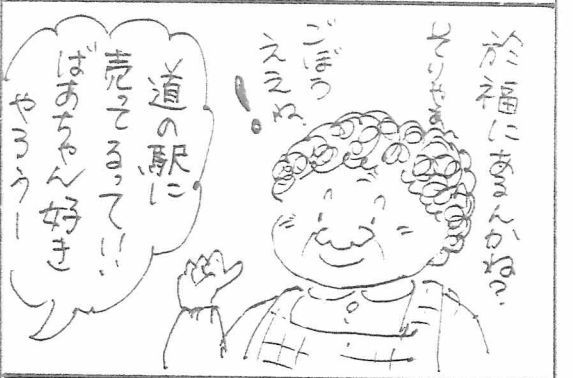 於福にあるんかね?
そりゃあ
ごぼう
ええね
!
道の駅に
売ってるって!!
ばあちゃん好き
やろうー